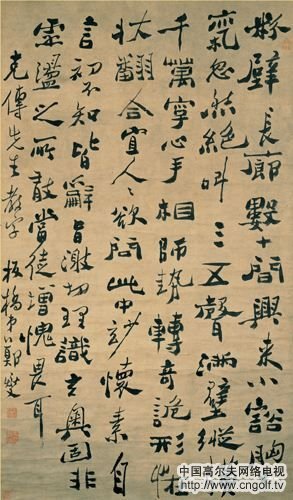 粉壁長廊數十間興來小豁胸
氣忽然絕叫三五聲滿壁縱橫
千萬字心手相師勢轉奇詭形怪
狀翻合宜人人欲問此中妙懷素自
言初不知皆辭旨激切理識玄奧固非
虛盪之所敢當徒增愧畏耳
克傳先生教字 板橋弟鄭燮
中国高尔夫网络电视
www.cngolf.tv